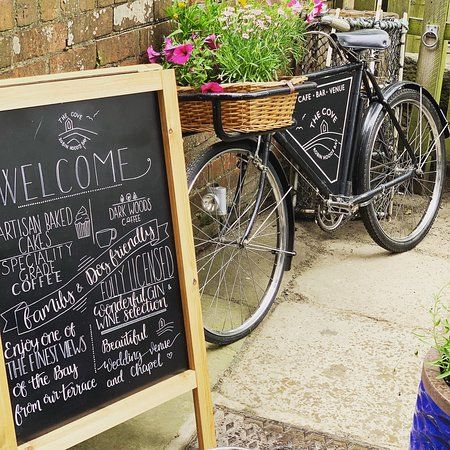 THE COVE
WELCOME
ARTISAN BAKED
CAKES
SPECIALITY
GRADE
COFFEE
DARK WOODS
COFFEE
family & Dog friendly
FULLY LICENSED
Wonderful GIN &
WINE selection
Enjoy one of
THE FINEST VIEWS
of the Bay
from our terrace
Beautiful
Wedding venue
and Chapel
CAFE • BAR • VENUE
THE COVE
ROBIN HOODS BAY